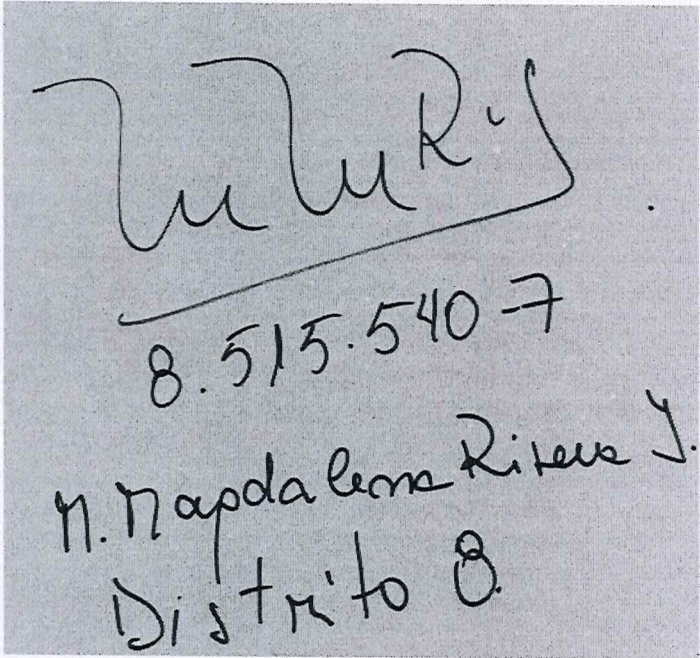 8.515.540-7
M. Magdalena Rivera Y.
Distrito 8.